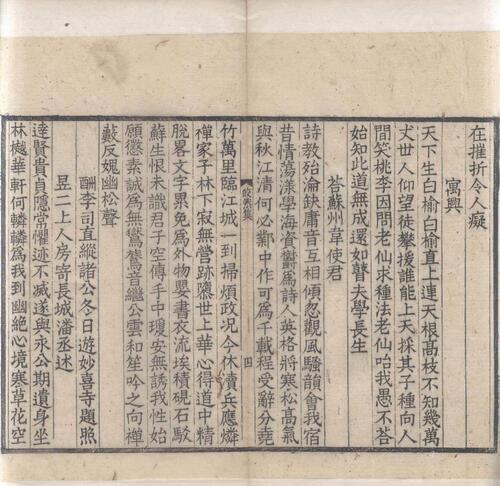 在摧折令人癡
寓興
天下生白榆白榆直上連天根高枝不知幾萬
丈世人仰望徒攀援誰能上天採其子種向人
間笑桃李因問老仙求種法老仙咍我愚不荅
始知此道無成還如瞽夫學長生
荅蘇州韋使君
詩教殆淪缺庸音互相傾忽觀風騷韻會我宿
昔情蕩漾學海資鬱爲詩人英格將寒松高氣
與秋江清何必鄴中作可爲千載程受辭分堯
竹萬里臨江城一到掃煩政況今休瀆兵應憐
禪家子林下寂無營跡隳世上華心得道中精
脫畧文字累免爲外物嬰書衣流埃積硯石駮
蘇生恨未識君子空傳手中瓊安無誘我性始
願懲素誠爲無鸞鷟音繼公雲和笙吟之向禪
藪反媿幽松聲
酬李司直縱諸公冬日遊妙喜寺題照
昱二上人房寄長城潘丞述
逹賢貴貞隱常懼迹不滅遂與永公期遺身坐
林樾華軒何轔轔爲我到幽絕心境寒草花空
四